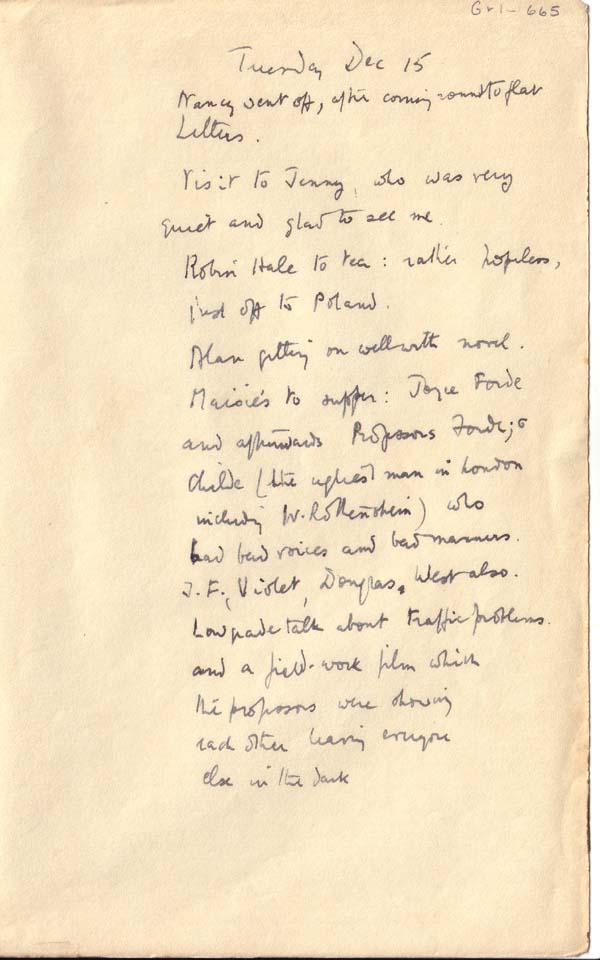 Gr1-665
Tuesday Dec 15
Nancy went off, after coming round to flat
Letters.
Visit to Jenny, who was very
quiet and glad to see me.
Robin Hale to tea: rather hopeless,
just off to Poland.
Alan getting on well with novel.
Maisie's to supper: Joyce Forde
and afterwards Professors Forde;
Childe (the ugliest man in London
including W. Rothenstein) who
had bad voices and bad manners.
J.F., Violet, Douglas, West also.
Low grade talk about traffic problems.
and a field-work film which
the professors were showing
each other leaving everyone
else in the dark